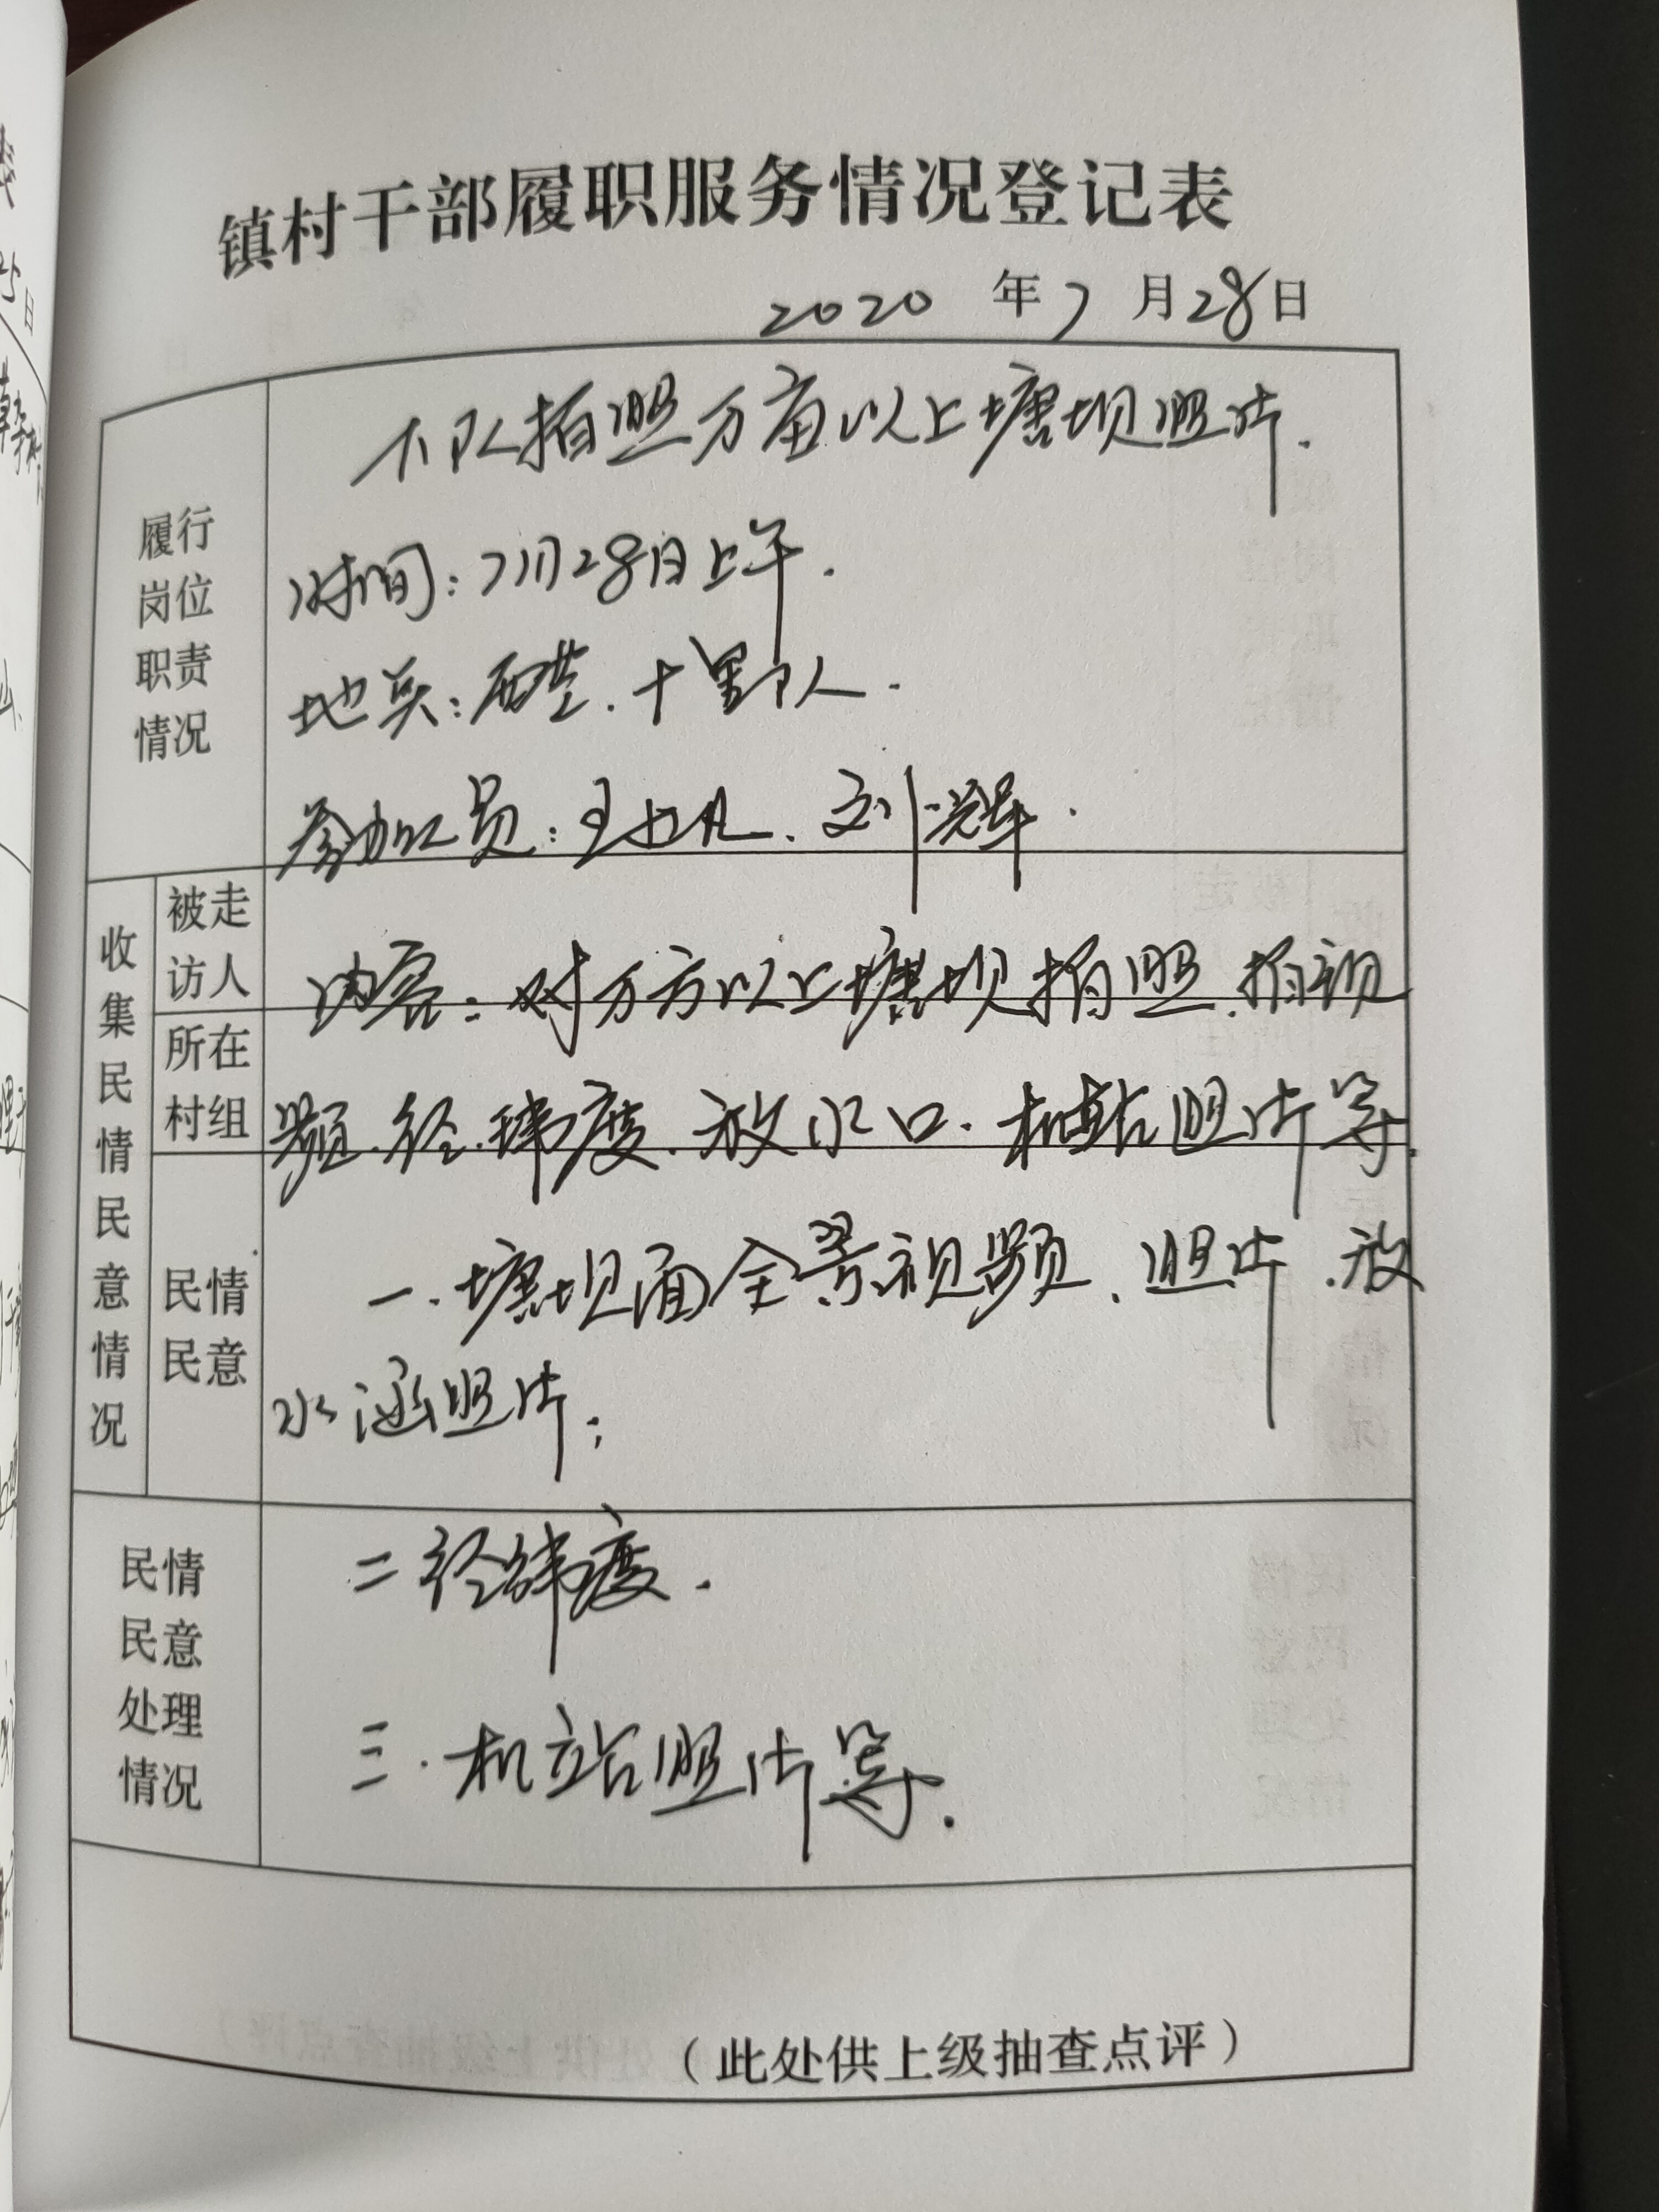 镇村干部履职服务情况登记表
2020 年 7 月 28 日
下队拍照万亩以上塘坝照片.
履行
岗位
职责
情况
时间:7月28日上午.
地点:西楚.十里队.
参加人员:王 凡、刘光辉.
收集民情民意情况
被走
访人
内容:对万方以上塘坝拍照.拍视
所在
村组
频.经.纬度.放水口.机站照片等.
民情
民意
一.塘坝面全景视频、照片.放
水涵照片;
民情
民意
处理
情况
二经纬度.
三.机站照片等.
(此处供上级抽查点评)